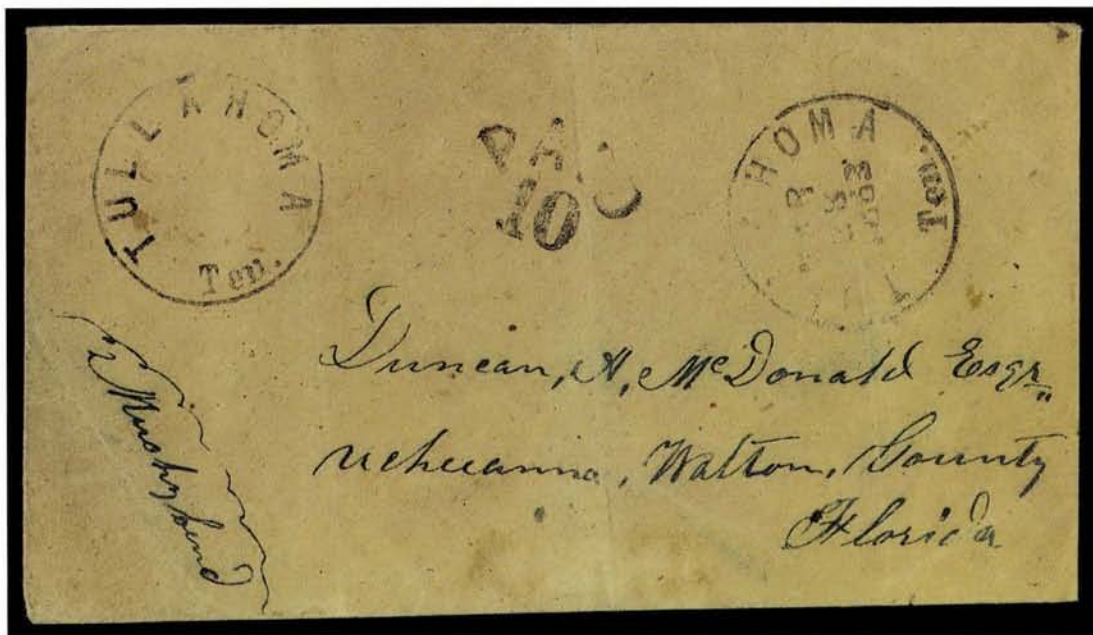 TULLAHOMA
Ten.
PAID
10
HOMA
Ten.
Duncan, A, McDonald Esqr
ucheeanna, Walton, County
Florida